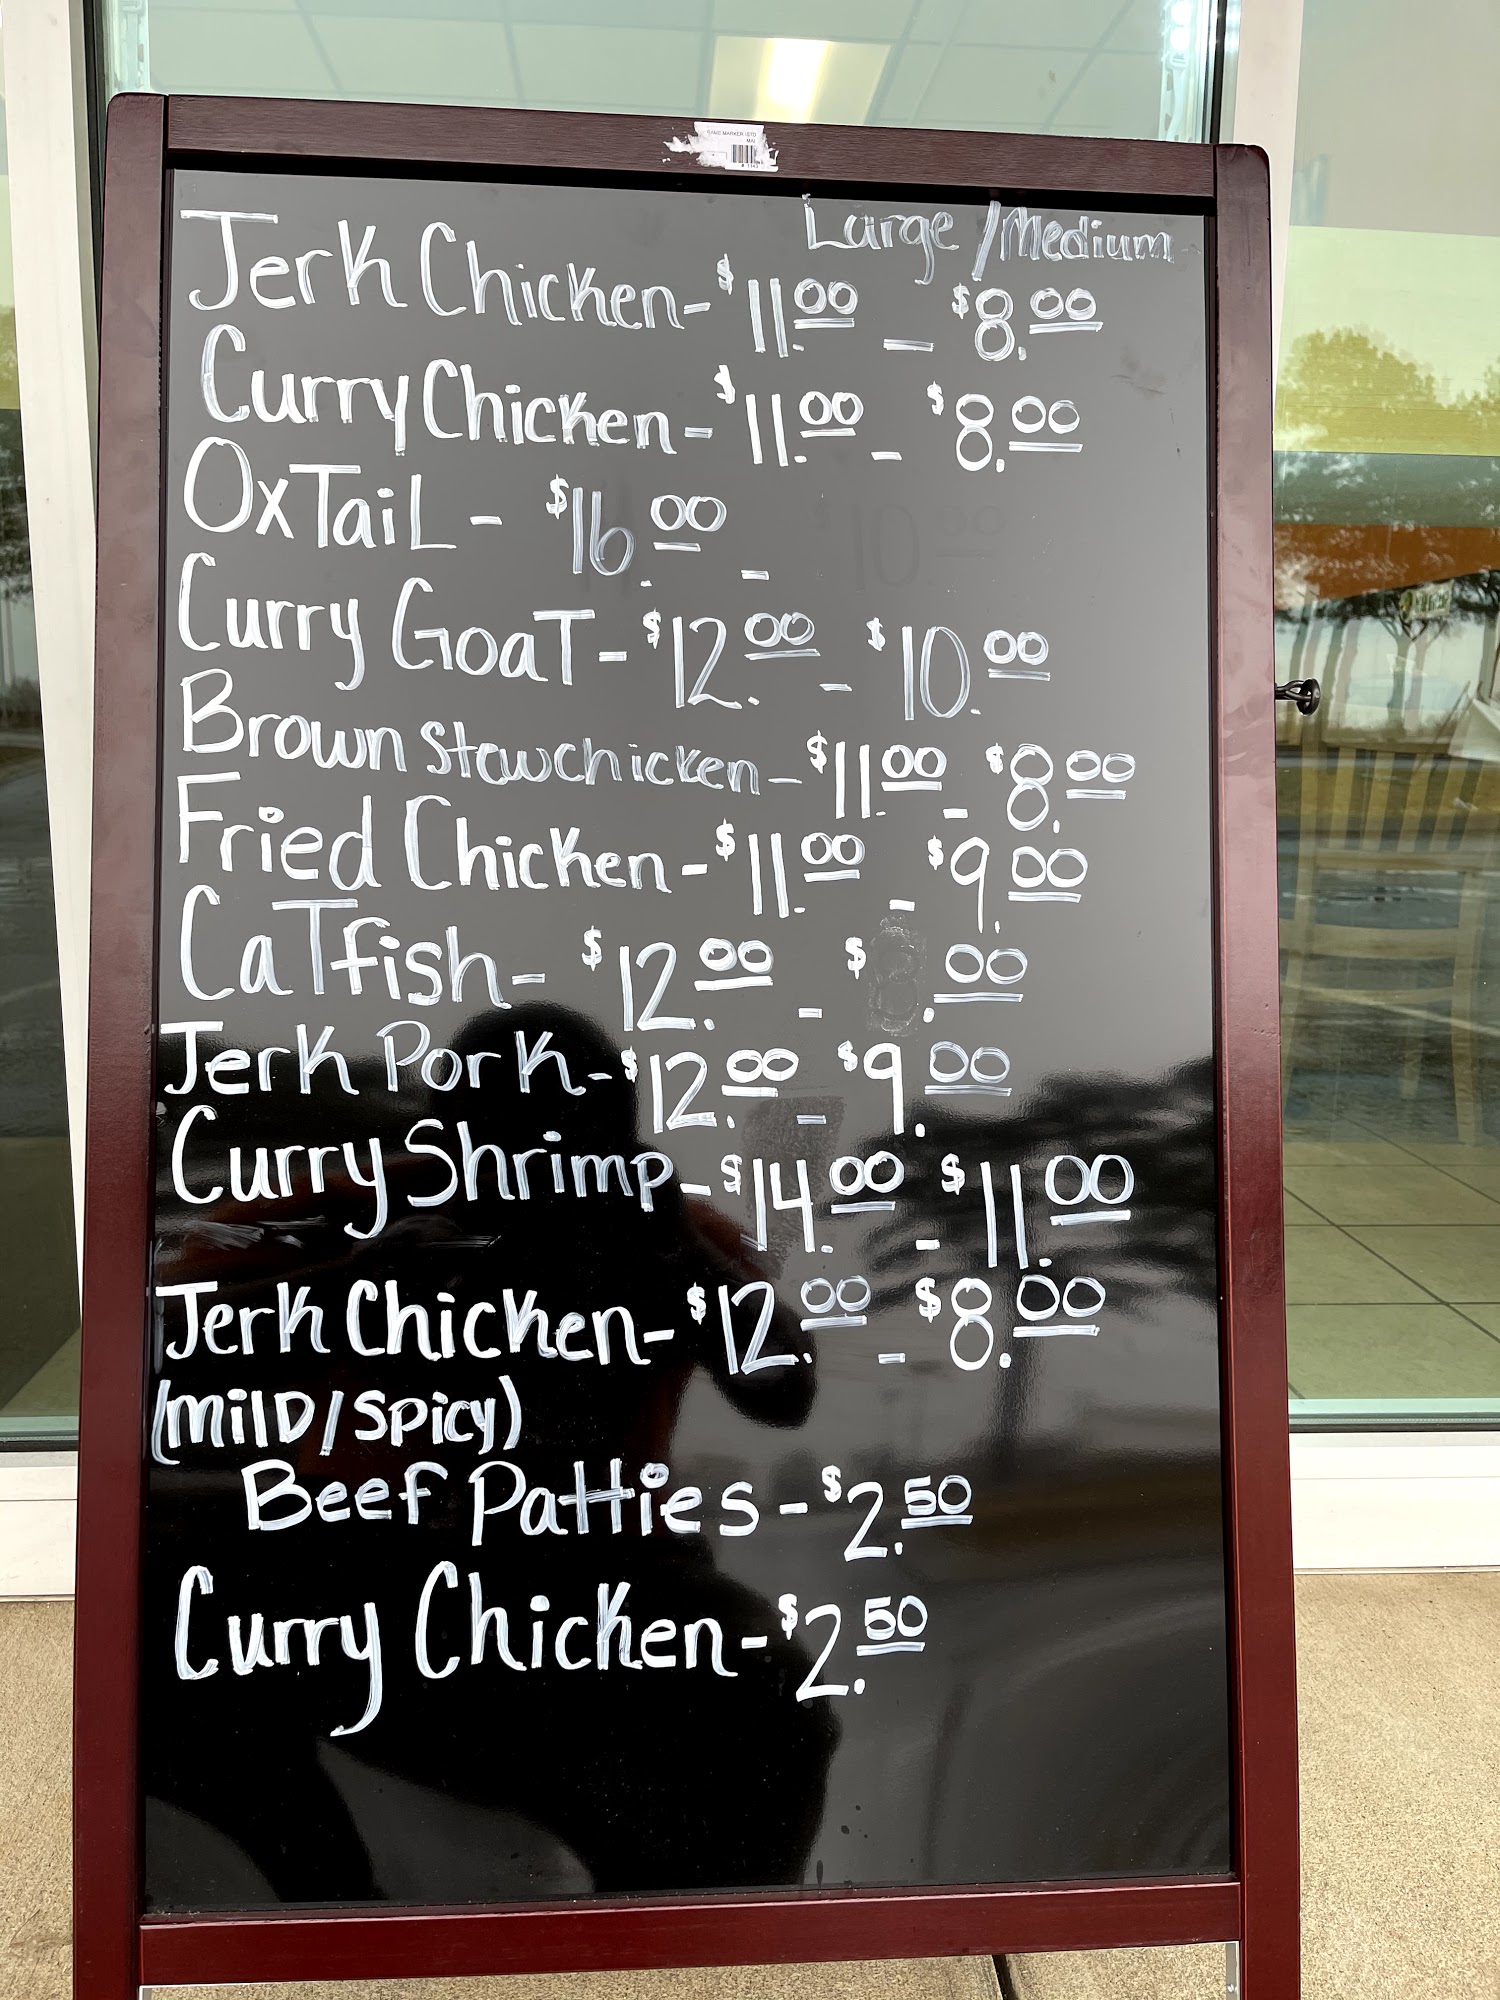 Large / Medium
Jerk Chicken - $11.00 - $8.00
Curry Chicken - $11.00 - $8.00
OxTaiL - $16.00 -
Curry GoaT - $12.00 - $10.00
Brown Stewchicken - $11.00 - $8.00
Fried Chicken - $11.00 - $9.00
CaTfish - $12.00 - $ .00
Jerk Pork - $12.00 - $9.00
Curry Shrimp - $14.00 - $11.00
Jerk Chicken - $12.00 - $8.00
(mild/Spicy)
Beef Patties - $2.50
Curry Chicken - $2.50